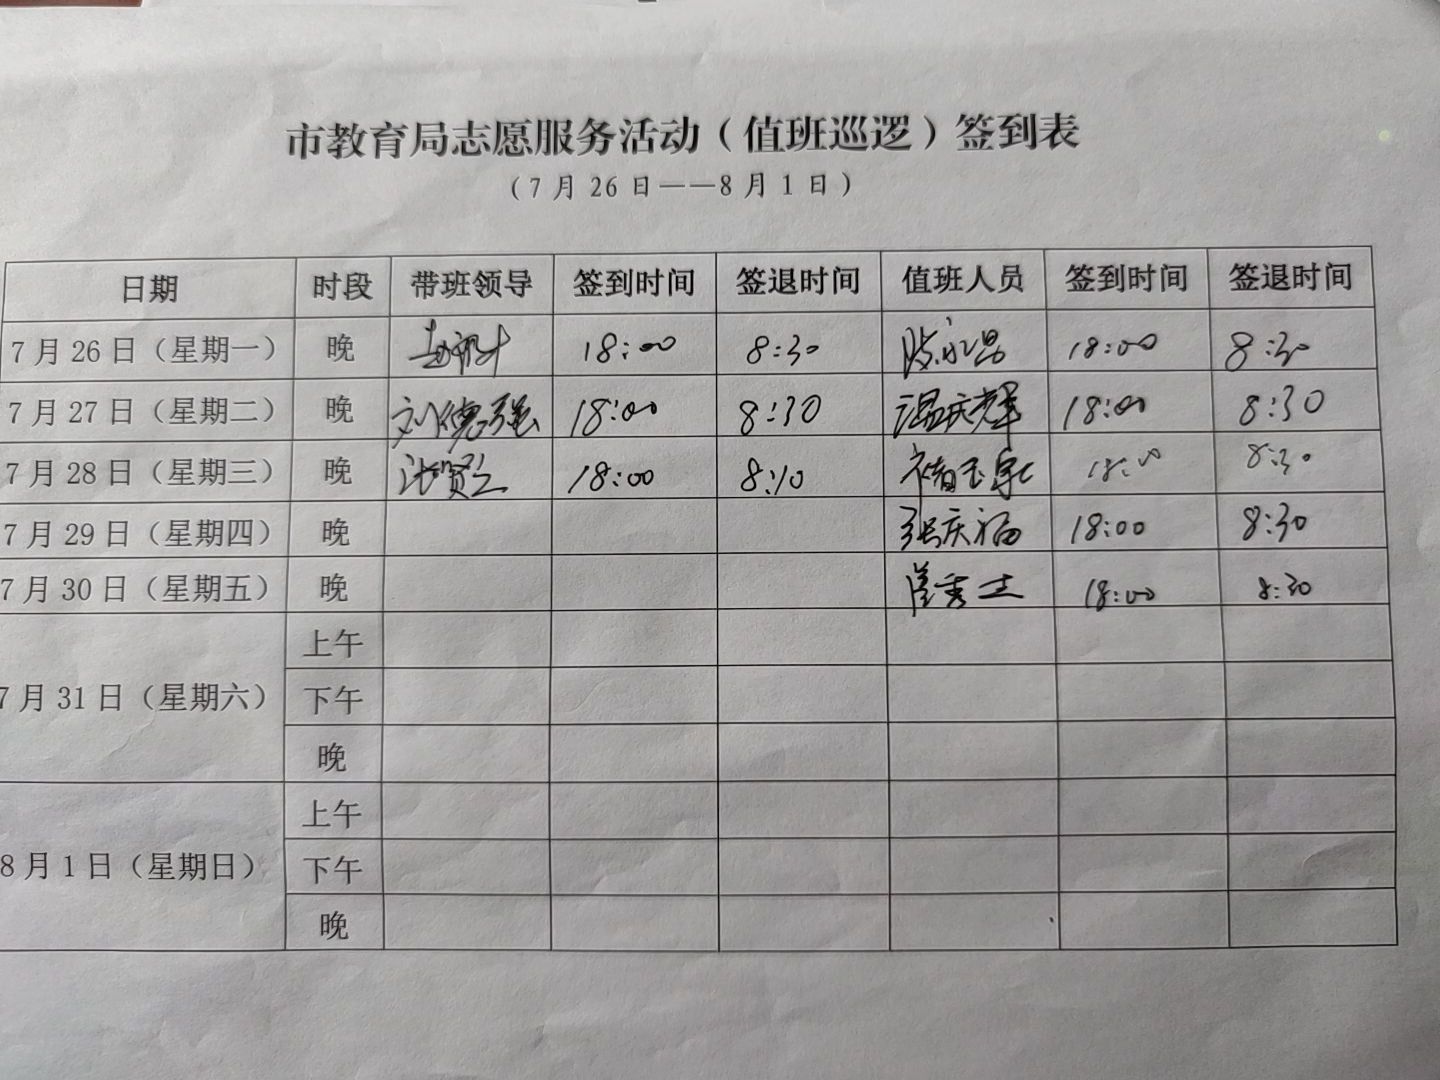 市教育局志愿服务活动（值班巡逻）签到表
（7月26日——8月1日）
日期 时段 带班领导 签到时间 签退时间 值班人员 签到时间 签退时间
7月26日（星期一） 晚 18:00 8:30 陈永昌 18:00 8:30
7月27日（星期二） 晚 刘德强 18:00 8:30 温庆辉 18:00 8:30
7月28日（星期三） 晚 18:00 8:10 18:00 8:30
7月29日（星期四） 晚 张庆福 18:00 8:30
7月30日（星期五） 晚 18:00 8:30
7月31日（星期六） 上午
下午
晚
8月1日（星期日） 上午
下午
晚